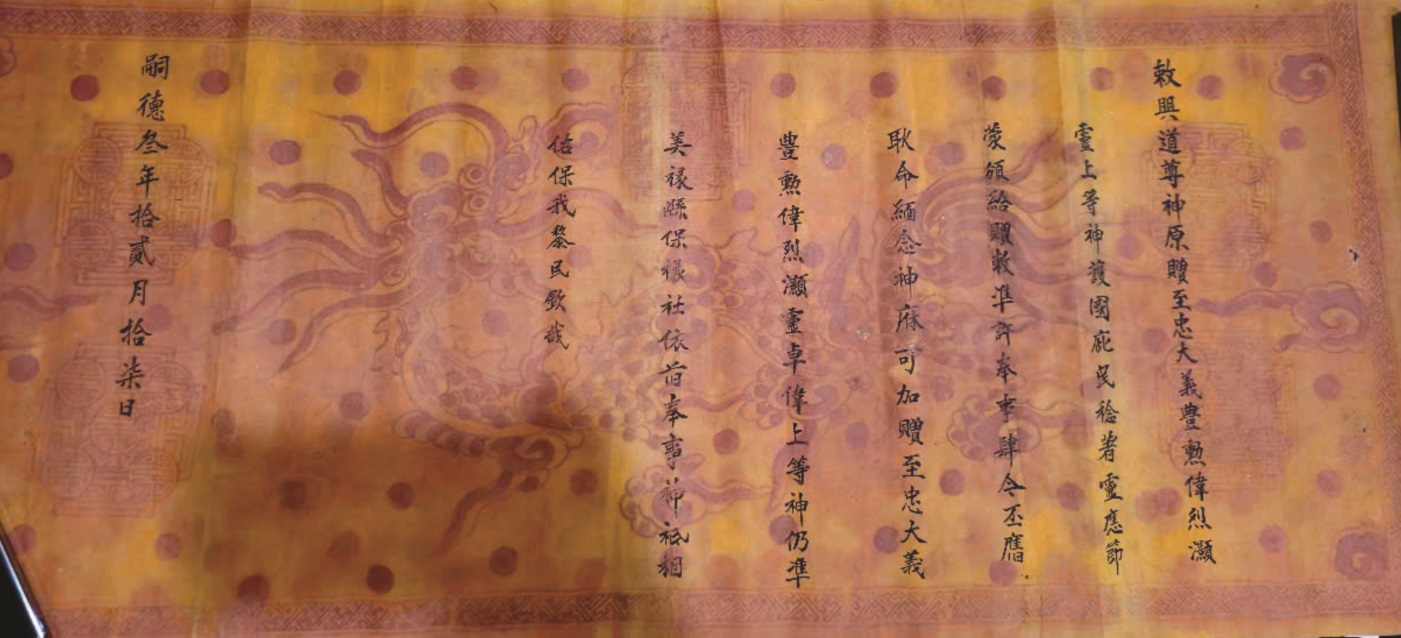 敕興道尊神原贈至忠大義豊勲偉烈灝
靈上等神護國庇民稔著靈應節
蒙頒給贈敕準許奉事肆今丕膺
耿命緬念神庥可加贈至忠大義
豊勲偉烈灝靈卓偉上等神仍準
美祿縣保祿社依舊奉事神祇相
佑保我黎民欽哉
嗣德叄年拾貳月拾柒日